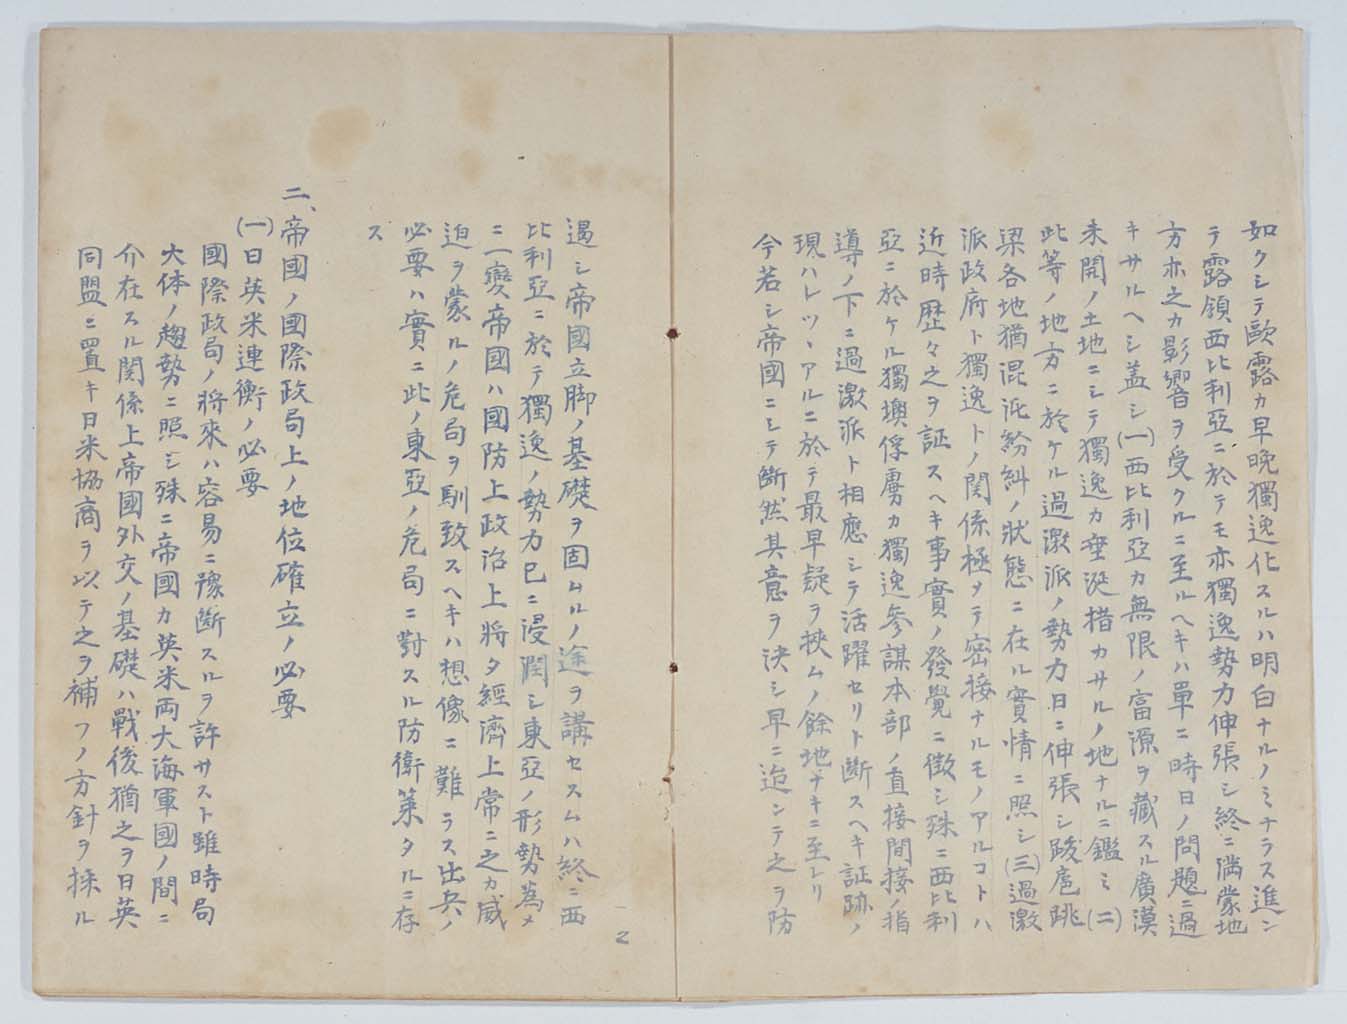 如クシテ歐露カ早晩獨逸化スルハ明白ナルノミナラス進ン
テ露領西比利亞ニ於テモ亦獨逸勢力伸張シ終ニ満蒙地
方亦之カ影響ヲ受クルニ至ルヘキハ單ニ時日ノ問題ニ過
キサルヘシ盖シ(一)西比利亞カ無限ノ富源ヲ藏スル廣漠
未開ノ土地ニシテ獨逸カ垂涎措カサルノ地ナルニ鑑ミ(二)
此等ノ地方ニ於ケル過激派ノ勢力日ニ伸張シ跋扈跳
梁各地猶混沌紛糾ノ狀態ニ在ル實情ニ照シ(三)過激
派政府ト獨逸トノ関係極メテ密接ナルモノアルコトハ
近時歴々之ヲ証スヘキ事實ノ發覺ニ徴シ殊ニ西比利
亞ニ於ケル獨墺俘虜カ獨逸参謀本部ノ直接間接ノ指
導ノ下ニ過激派ト相應シテ活躍セリト断スヘキ証跡ノ
現ハレツヽアルニ於テ最早疑ヲ挾ムノ餘地ナキニ至レリ
今若シ帝國ニシテ断然其意ヲ決シ早ニ迨ンテ之ヲ防
遏シ帝國立脚ノ基礎ヲ固ムルノ途ヲ講セスムハ終ニ西
比利亞ニ於テ獨逸ノ勢力已ニ浸潤シ東亞ノ形勢為メ
ニ一變帝國ハ國防上政治上將タ經濟上常ニ之カ威
迫ヲ蒙ルノ危局ヲ馴致スヘキハ想像ニ難ラス出兵ノ
必要ハ實ニ此ノ東亞ノ危局ニ對スル防衛策タルニ存
ス
二、帝國ノ國際政局上ノ地位確立ノ必要
(一)日英米連衡ノ必要
國際政局ノ將來ハ容易ニ豫断スルヲ許サスト雖時局
大体ノ趨勢ニ照シ殊ニ帝國カ英米両大海軍國ノ間ニ
介在スル関係上帝國外交ノ基礎ハ戰後猶之ヲ日英
同盟ニ置キ日米協商ヲ以テ之ヲ補フノ方針ヲ採ル
2